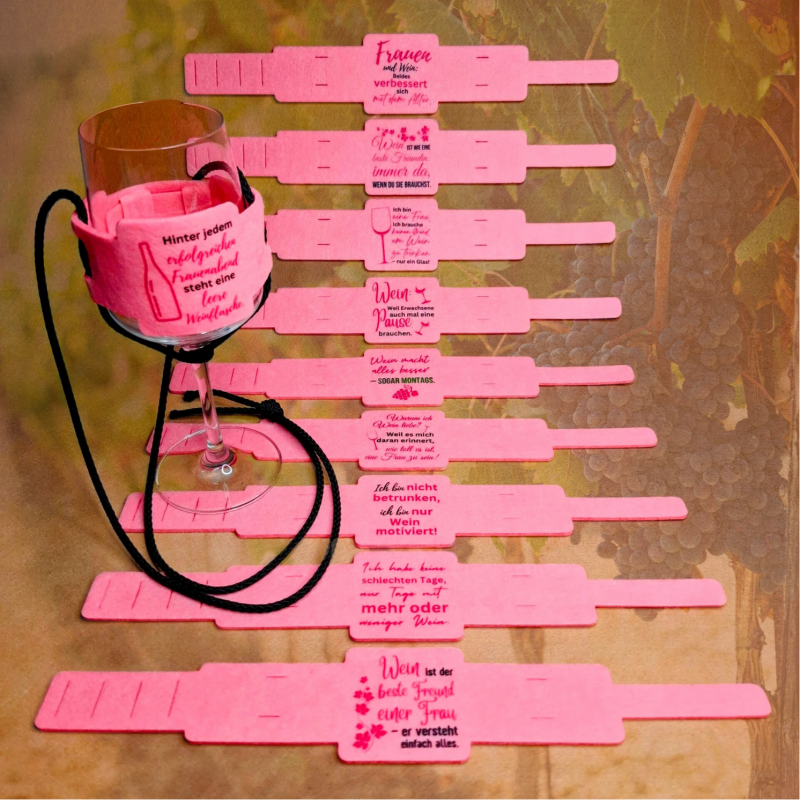 Frauen
und Wein:
Beides
verbessert
sich
mit dem Alter.
Wein IST WIE EINE
beste Freundin
immer da,
WENN DU SIE BRAUCHST.
Ich bin
eine Frau,
ich brauche
keinen Grund
um Wein
zu trinken
– nur ein Glas!
Hinter jedem
erfolgreichen
Frauenabend
steht eine
leere
Weinflasche.
Wein:
Weil Erwachsene
auch mal eine
Pause
brauchen.
Wein macht
alles besser
– SOGAR MONTAGS.
Warum ich
Wein liebe?
Weil es mich
daran erinnert,
wie toll es ist,
eine Frau zu sein!
Ich bin nicht
betrunken,
ich bin nur
Wein
motiviert!
Ich habe keine
schlechten Tage,
nur Tage mit
mehr oder
weniger Wein.
Wein ist der
beste Freund
einer Frau
– er versteht
einfach alles.